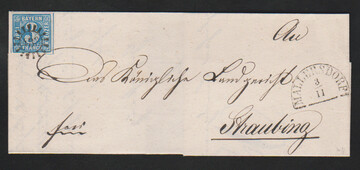 BAYERN
An
Das Königliche Landgericht
MALLERSDORF
3
11
frei
Straubing